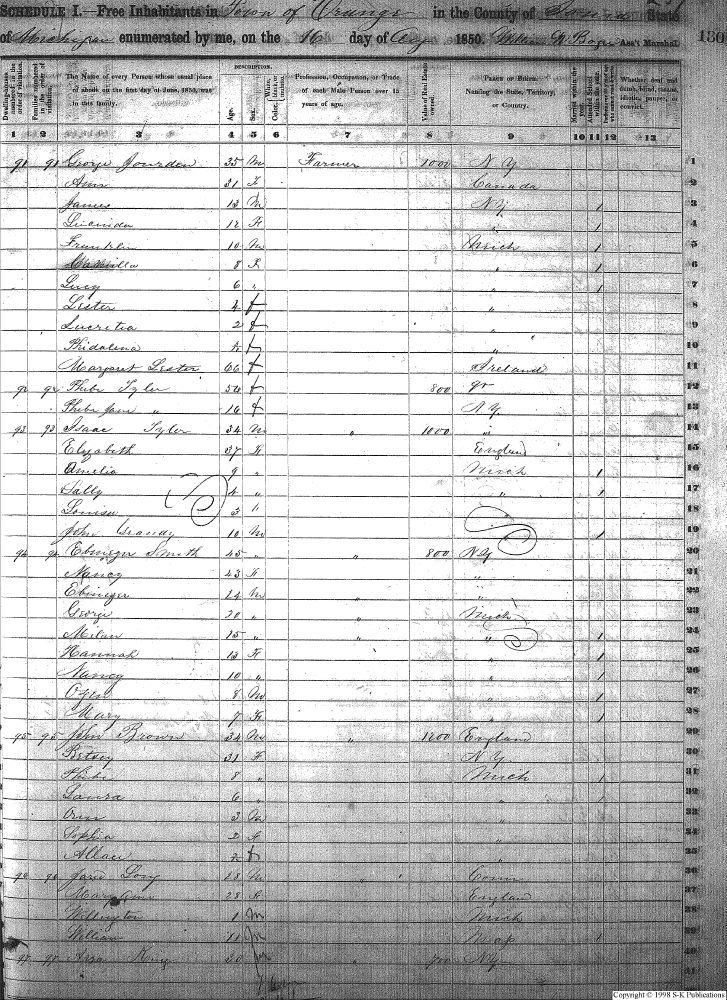 SCHEDULE I.—Free Inhabitants in Town of Orange in the County of Ionia State
of Michigan enumerated by me, on the 16 day of Aug 1850. Ass't Marshal 130
DESCRIPTION.
The Name of every Person whose usual place of abode on the first day of June, 1850, was in this family.
Age. Sex. Color,
Profession, Occupation, or Trade of each Male Person over 15 years of age.
Value of Real Estate owned.
PLACE OF BIRTH. Naming the State, Territory, or Country.
Whether deaf and dumb, blind, insane, idiotic, pauper, or convict.
1 2 3 4 5 6 7 8 9 10 11 12 13
91 91 George Jourdan 35 M Farmer 1000 N Y 1
Ann 31 F Canada 2
James 13 M NY 1 3
Lucinda 12 F " 1 4
Franklin 10 M Mich 1 5
8 F " 1 6
Lucy 6 " " 1 7
Lester 4 f " 8
Lucretia 2 f " 9
f " 10
Margaret Lester 66 f Ireland 11
92 92 Phebe Tyler f 800 12
Phebe Jane " 16 f N.Y. 13
93 93 Isaac Tyler 34 M " 1000 " 14
Elizabeth 37 F England 15
Amelia 9 " Mich 1 16
Sally 4 " " 1 17
Louisa 3 " 18
John Grandy 10 M 1 19
94 94 Ebenezer Smith 45 " " 800 NY 20
Nancy 43 F " 21
Ebenezer 24 M " " 22
George 20 " " Mich 23
Milan 15 " " " 1 24
Hannah 13 F " 1 25
Nancy 10 " " 1 26
8 M " 1 27
Mary 7 F " 1 28
95 95 John Brown 34 M " 1200 England 29
Betsey 31 F N.Y. 30
Phebe 8 " Mich 1 31
Laura 6 " " 1 32
Orin 3 M " 33
Sophia 2 F " 34
f " 35
96 96 28 M " Conn 36
Mary Ann 28 F England 37
Willington 1 M Mich 38
William 11 M 1 39
King 30 M " NY 40
41
Copyright © 1998 S-K Publications